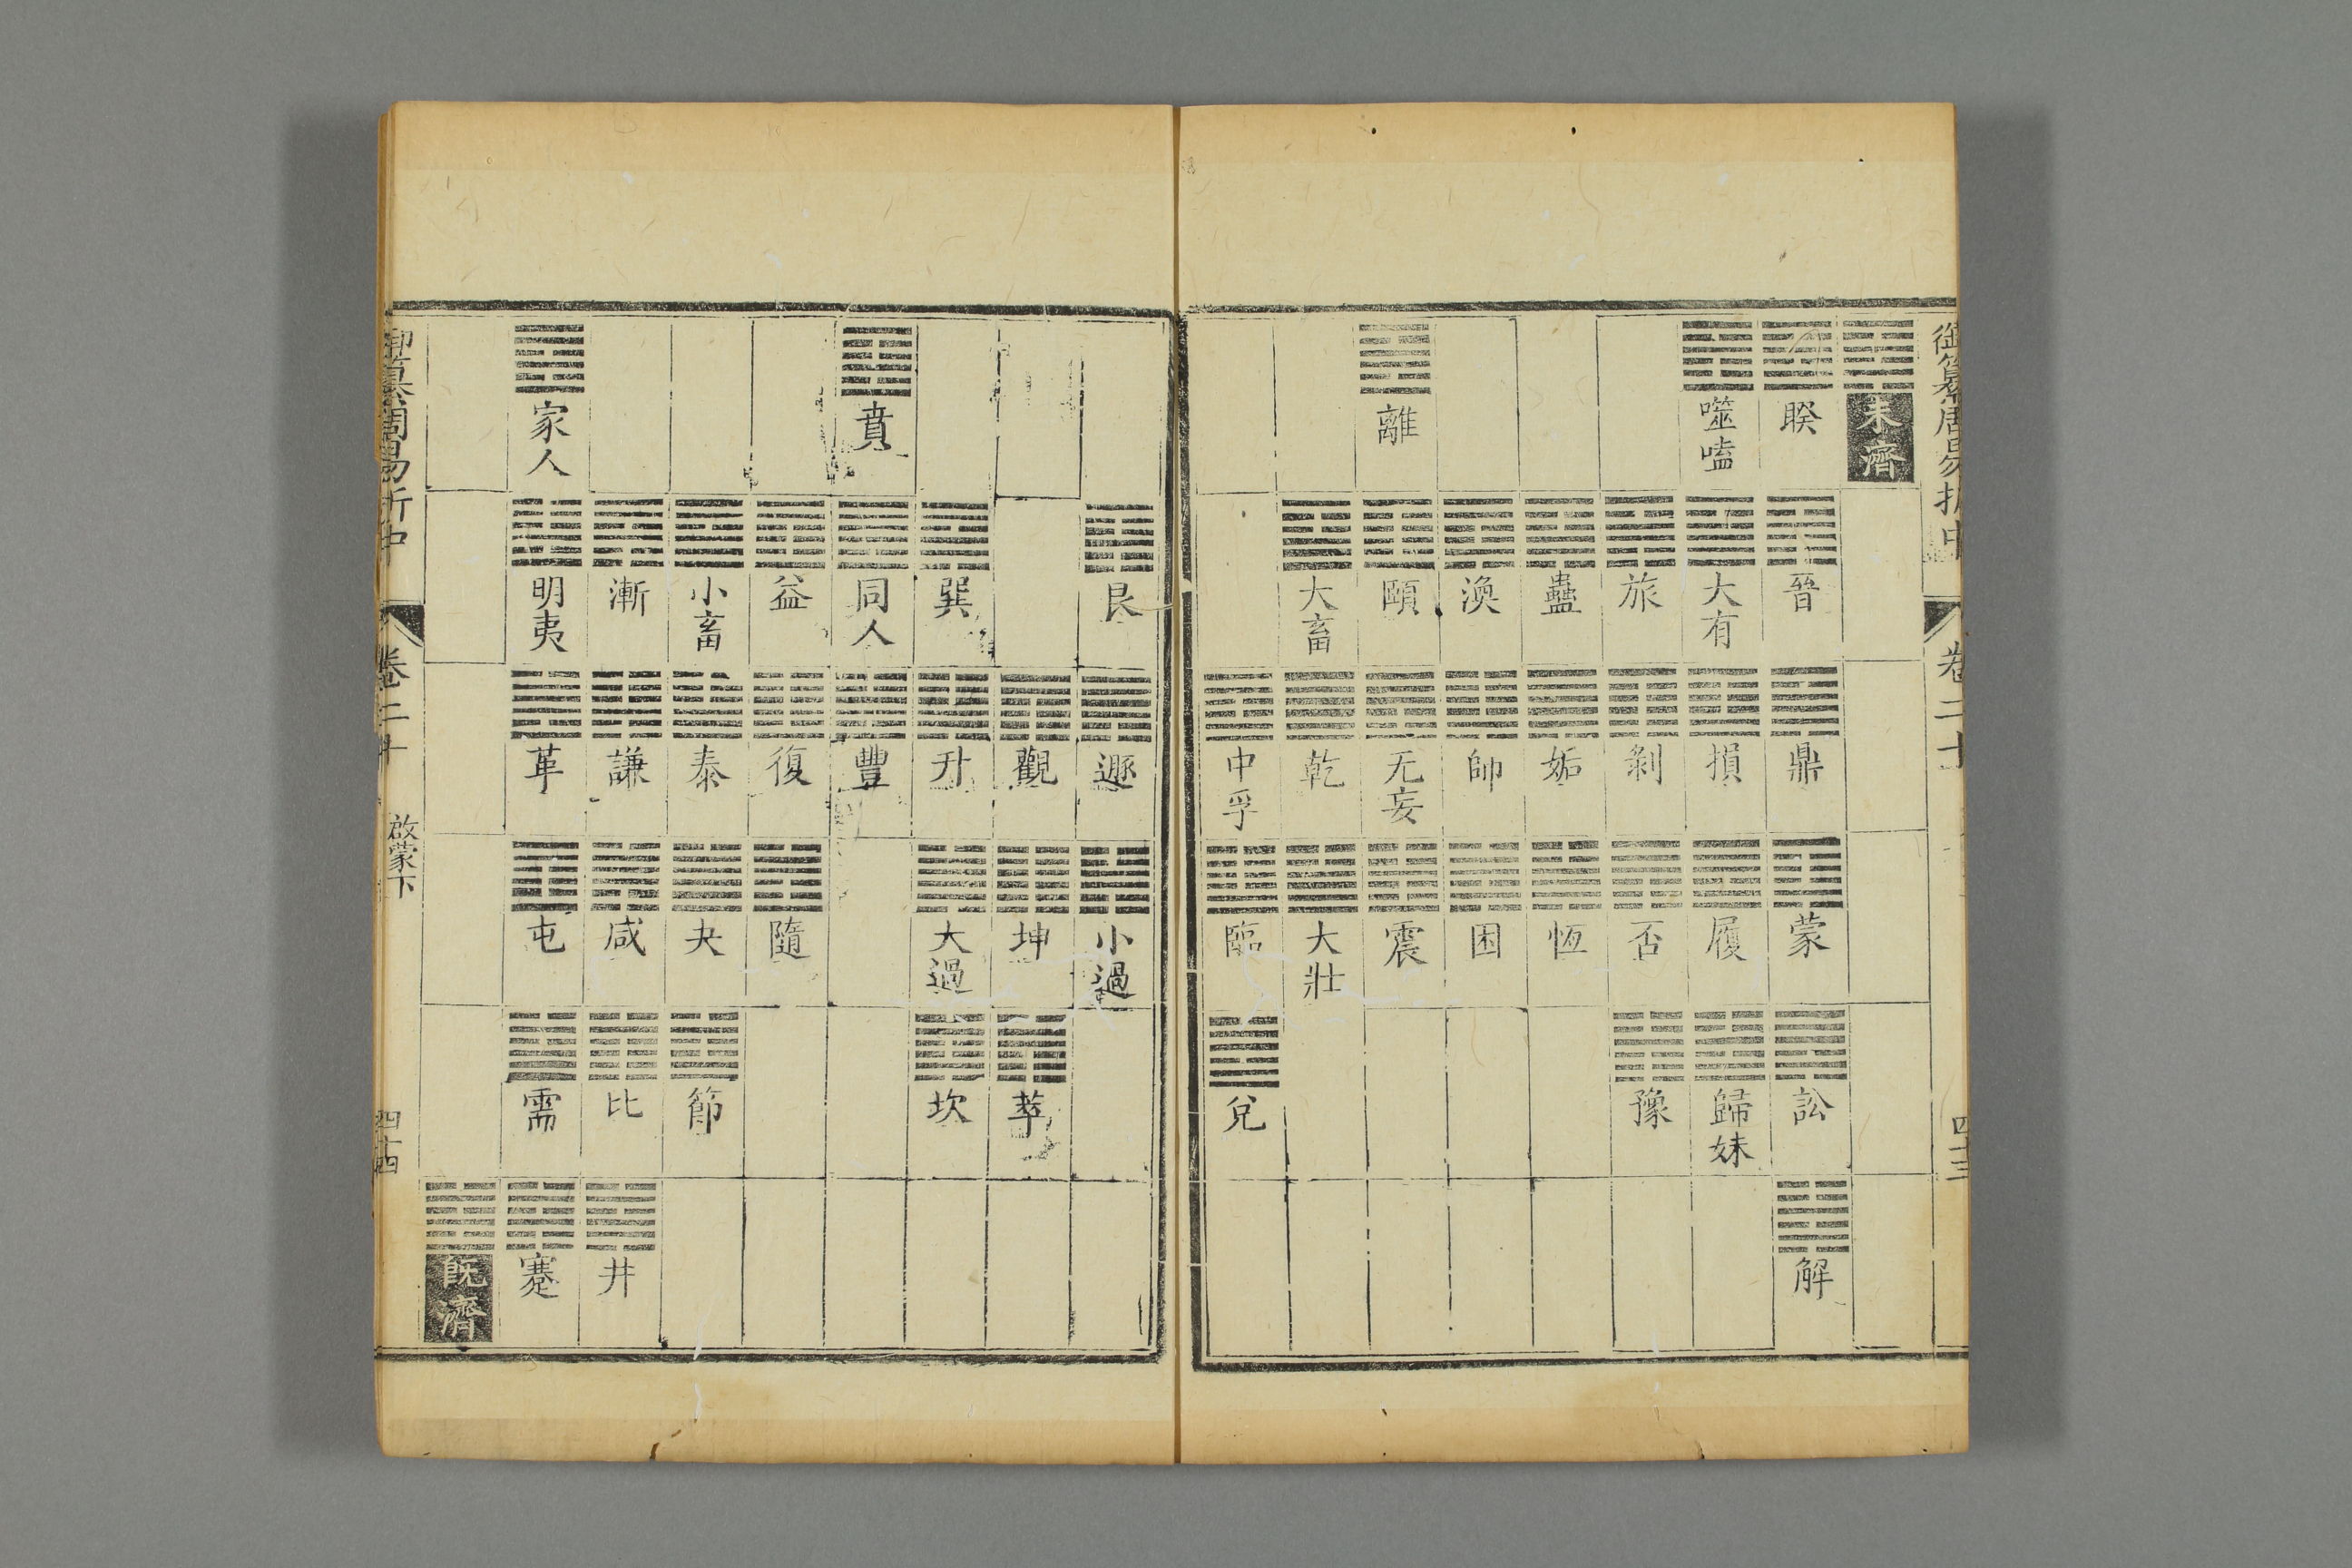 御纂周易折中 卷二十 四十三
未濟
睽 晉 鼎 蒙 訟 解
噬嗑 大有 損 履 歸妹
旅 剝 否 豫
蠱 姤 恆
渙 師 困
離 頤 无妄 震
大畜 乾 大壯
中孚 臨 兌
艮 遯 小過
觀 坤 萃
巽 升 大過 坎
賁 同人 豐
益 復 隨
小畜 泰 夬 節
漸 謙 咸 比 井
家人 明夷 革 屯 需 蹇
既濟
御纂周易折中 卷二十 啟蒙下 四十四